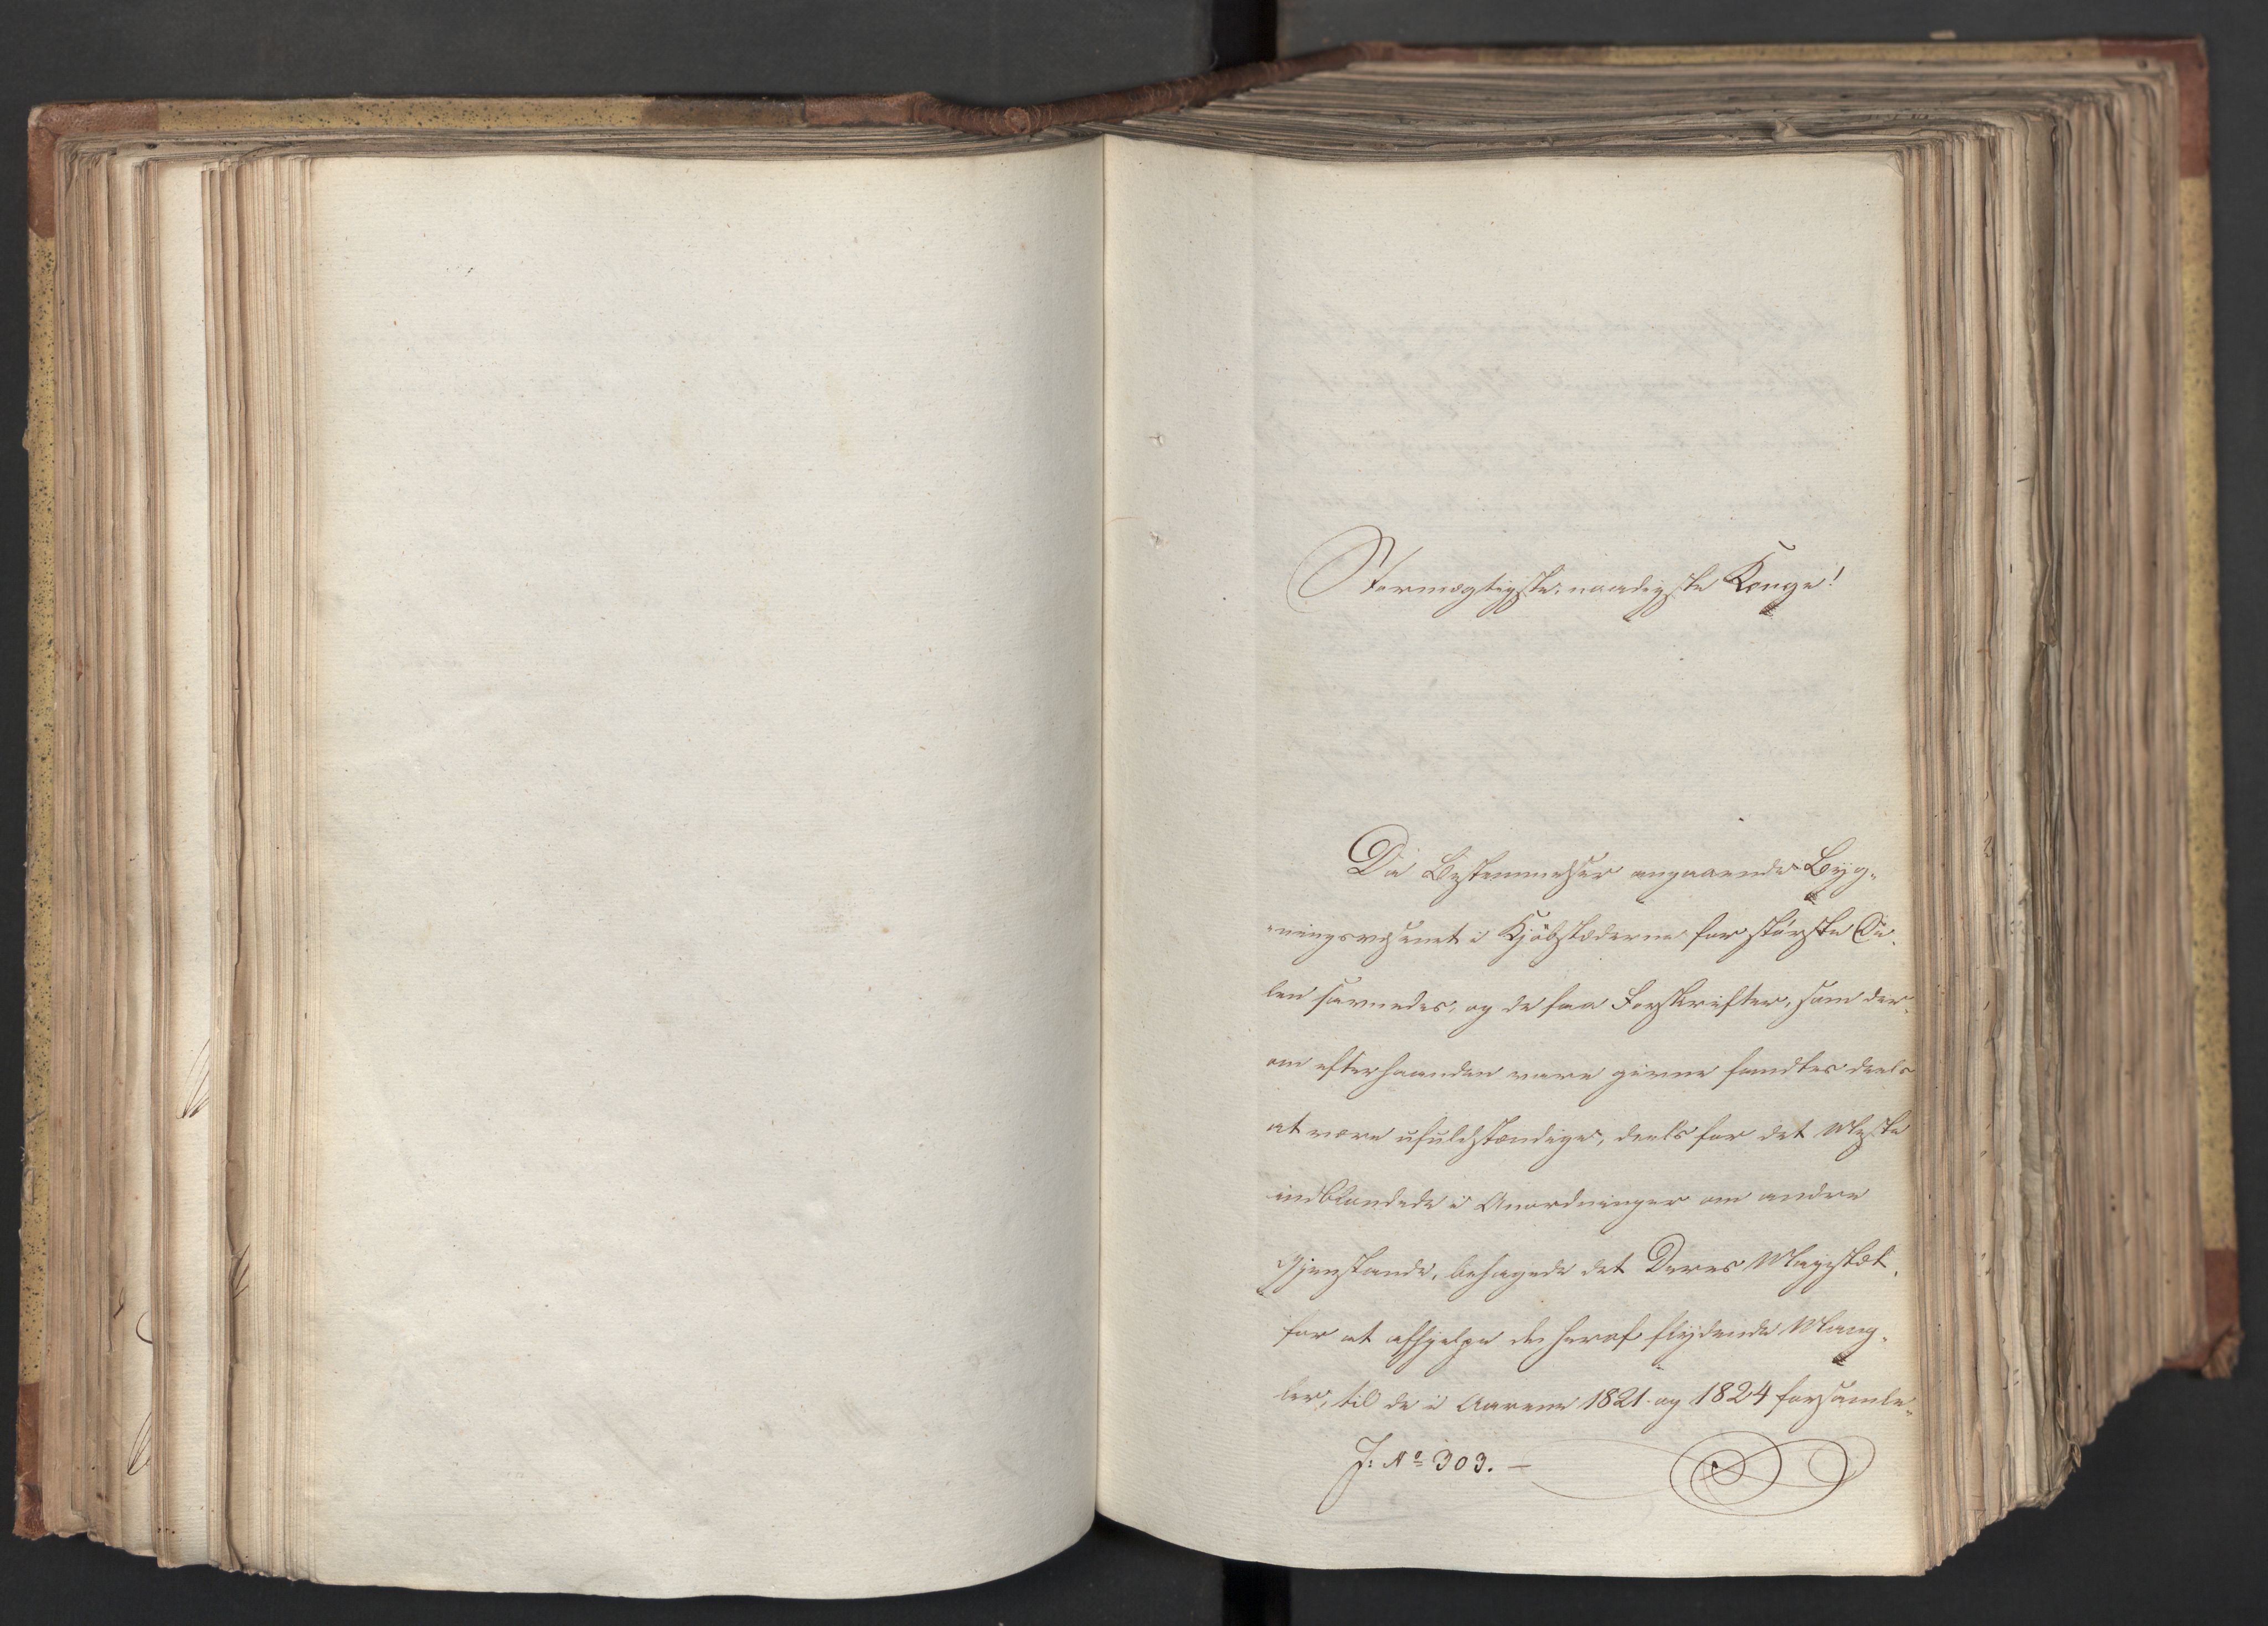 Stormægtigste, naadigste Konge!
Da Bestemmelser angaaende Byg-
-ningsvæsenet i Kjøbstæderne for største De-
len savnedes, og de faa Forskrifter, som der-
om efterhaanden vare givne fandtes deels
at være ufuldstændige, deels for det Meste
indblandede i Anordninger om andre
Gjenstande, behagede det Deres Majestæt,
for at afhjelpe de heraf flydende Mang-
ler, til de i Aarene 1821 og 1824 forsamle-
J: No 303. –